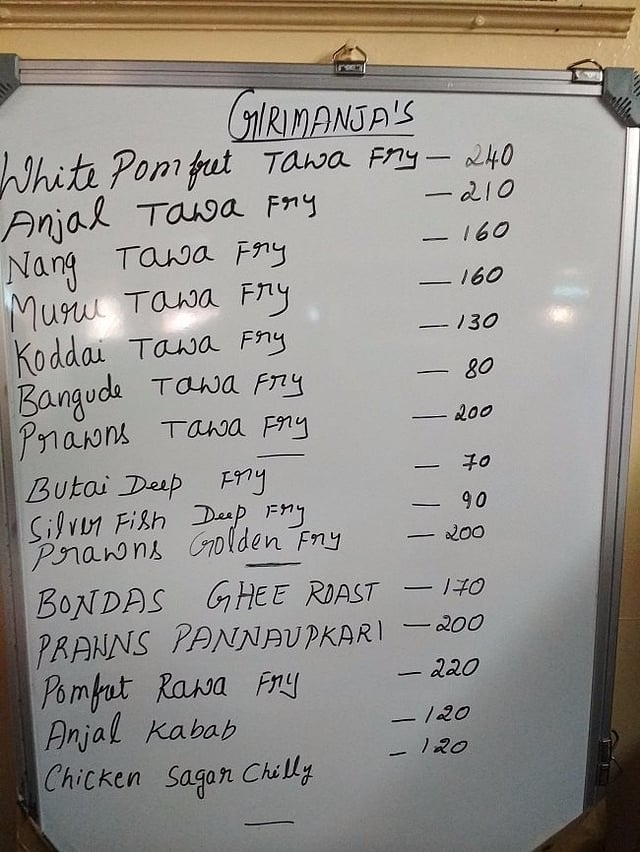 GIRIMANJA'S
White Pomfret Tawa Fry — 240
Anjal Tawa Fry — 210
Nang Tawa Fry — 160
Muru Tawa Fry — 160
Koddai Tawa Fry — 130
Bangude Tawa Fry — 80
Prawns Tawa Fry — 200
Butai Deep Fry — 70
Silver Fish Deep Fry — 90
Prawns Golden Fry — 200
BONDAS GHEE ROAST — 170
PRAWNS PANNAUPKARI — 200
Pomfret Rawa Fry — 220
Anjal Kabab — 120
Chicken Sagar Chilly — 120